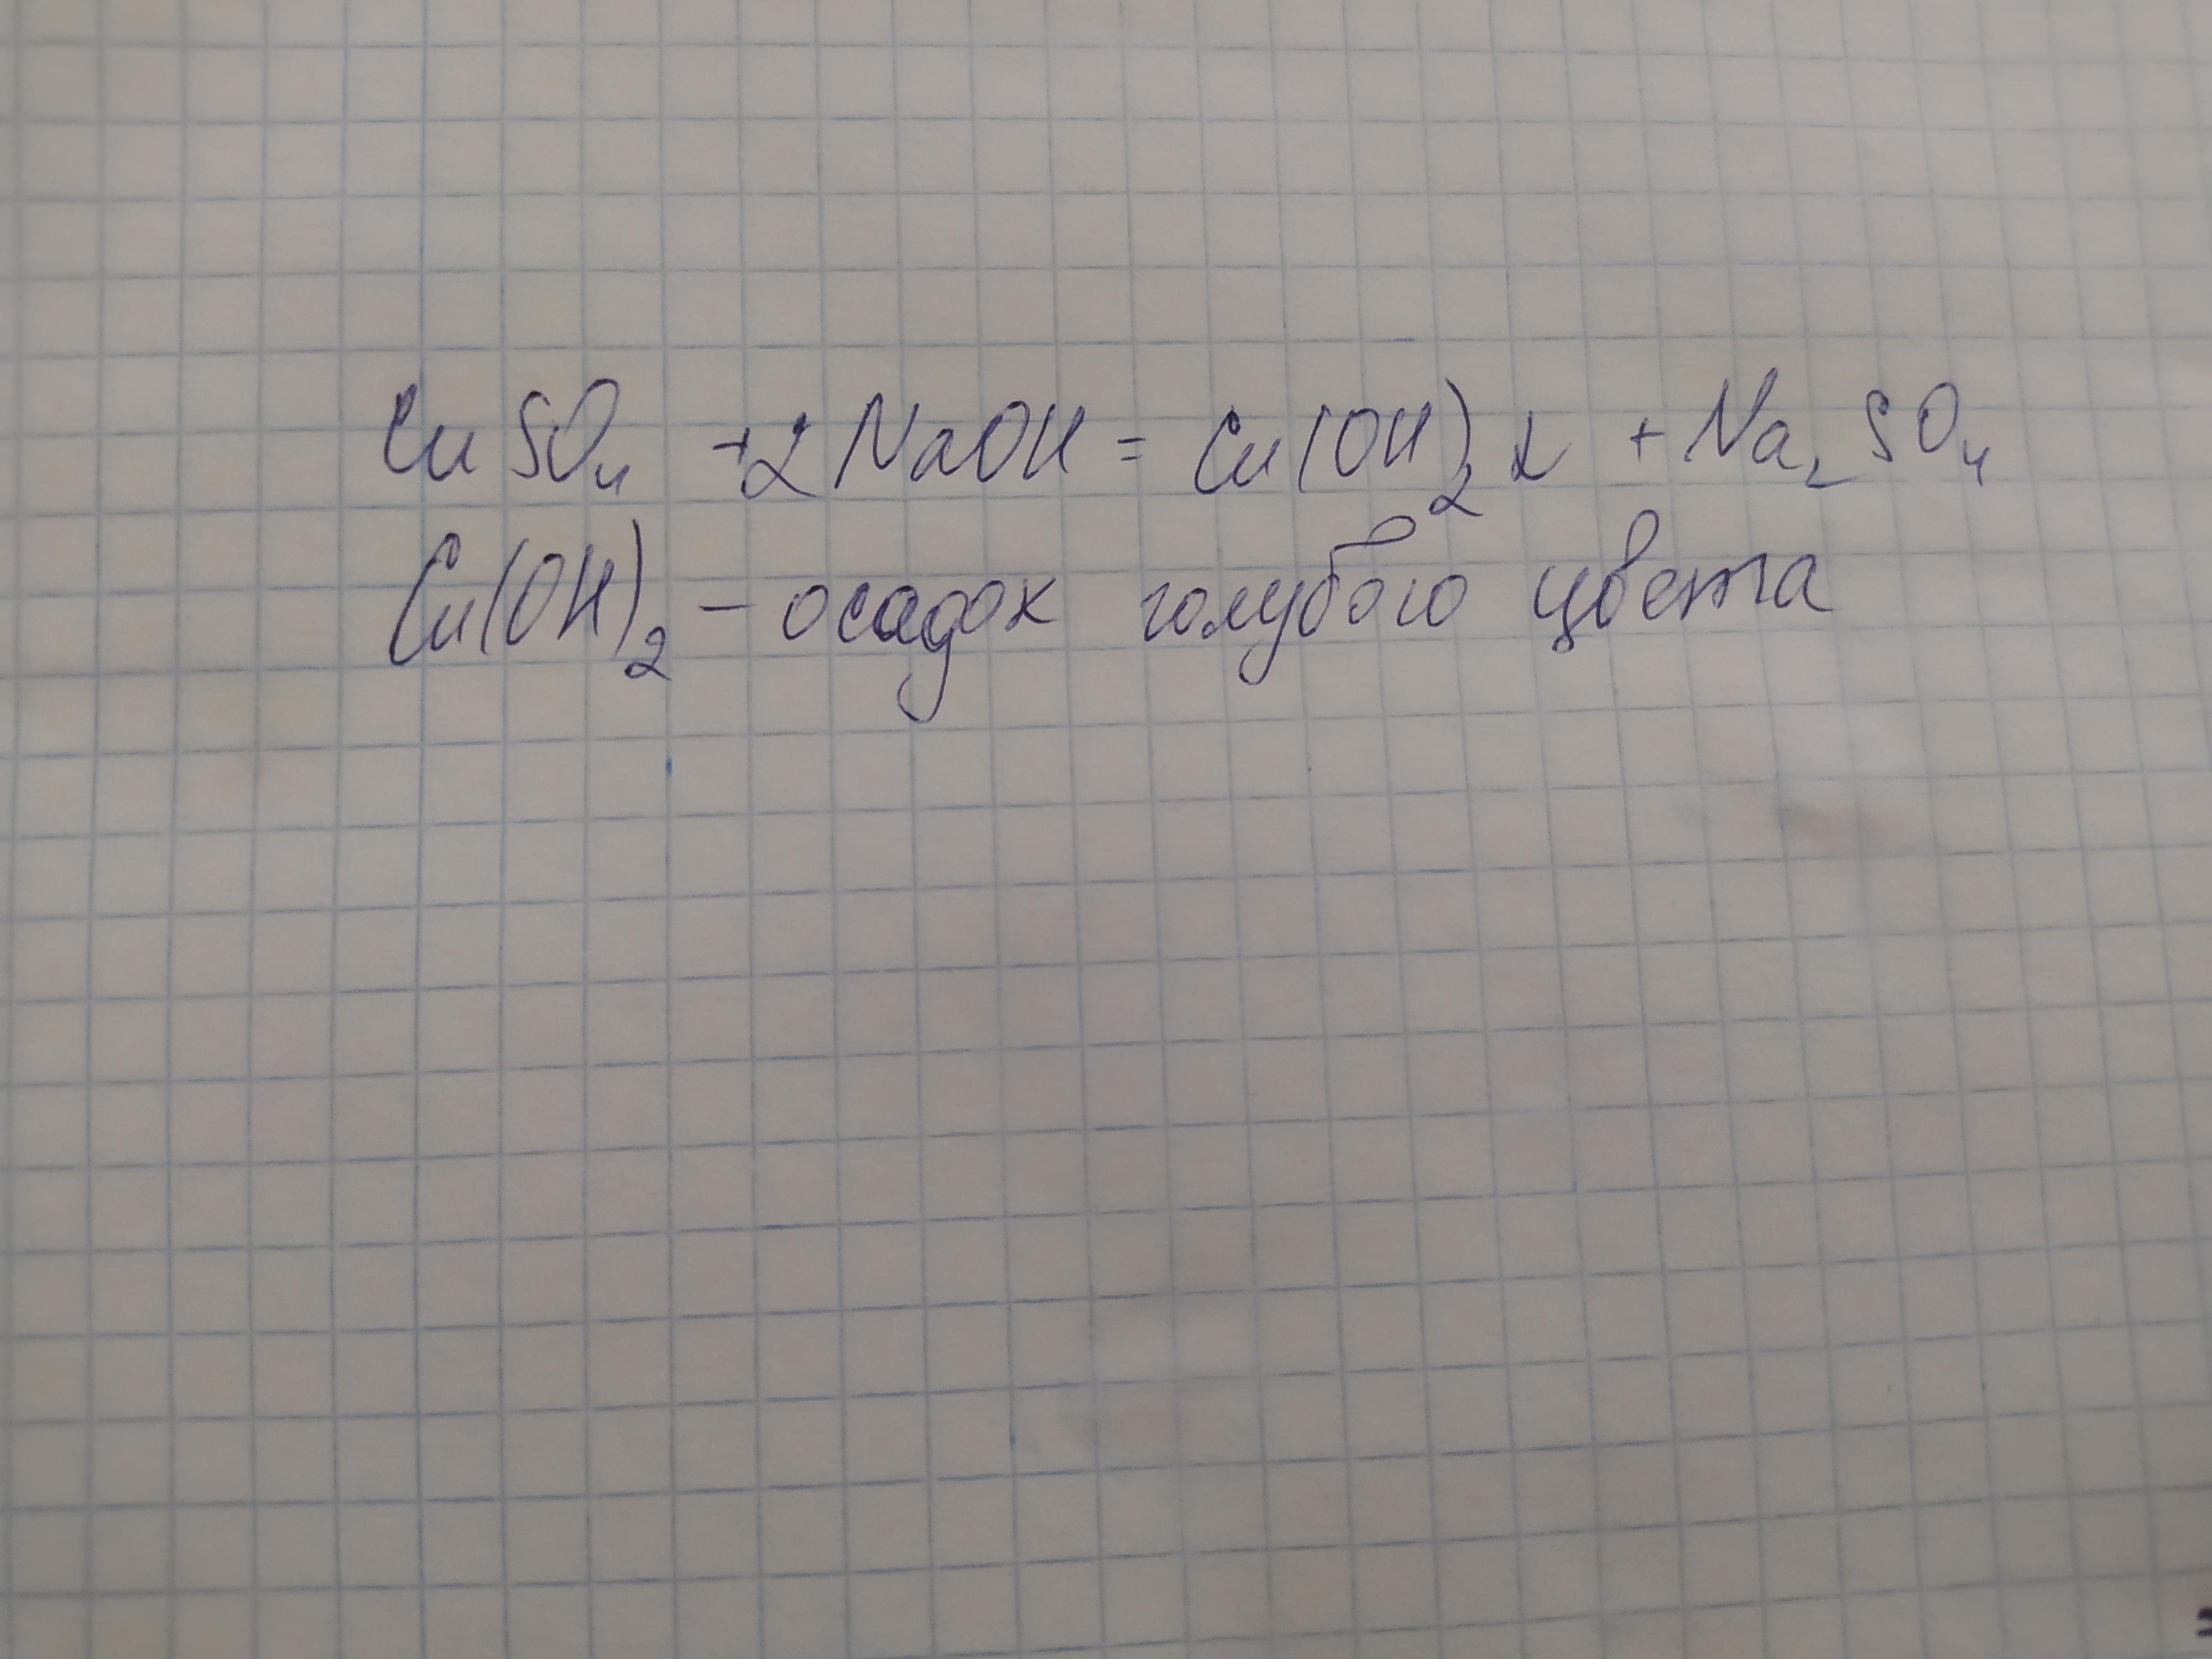 CuSO₄ + 2NaOH = Cu(OH)₂↓ + Na₂SO₄
Cu(OH)₂ – осадок голубого цвета